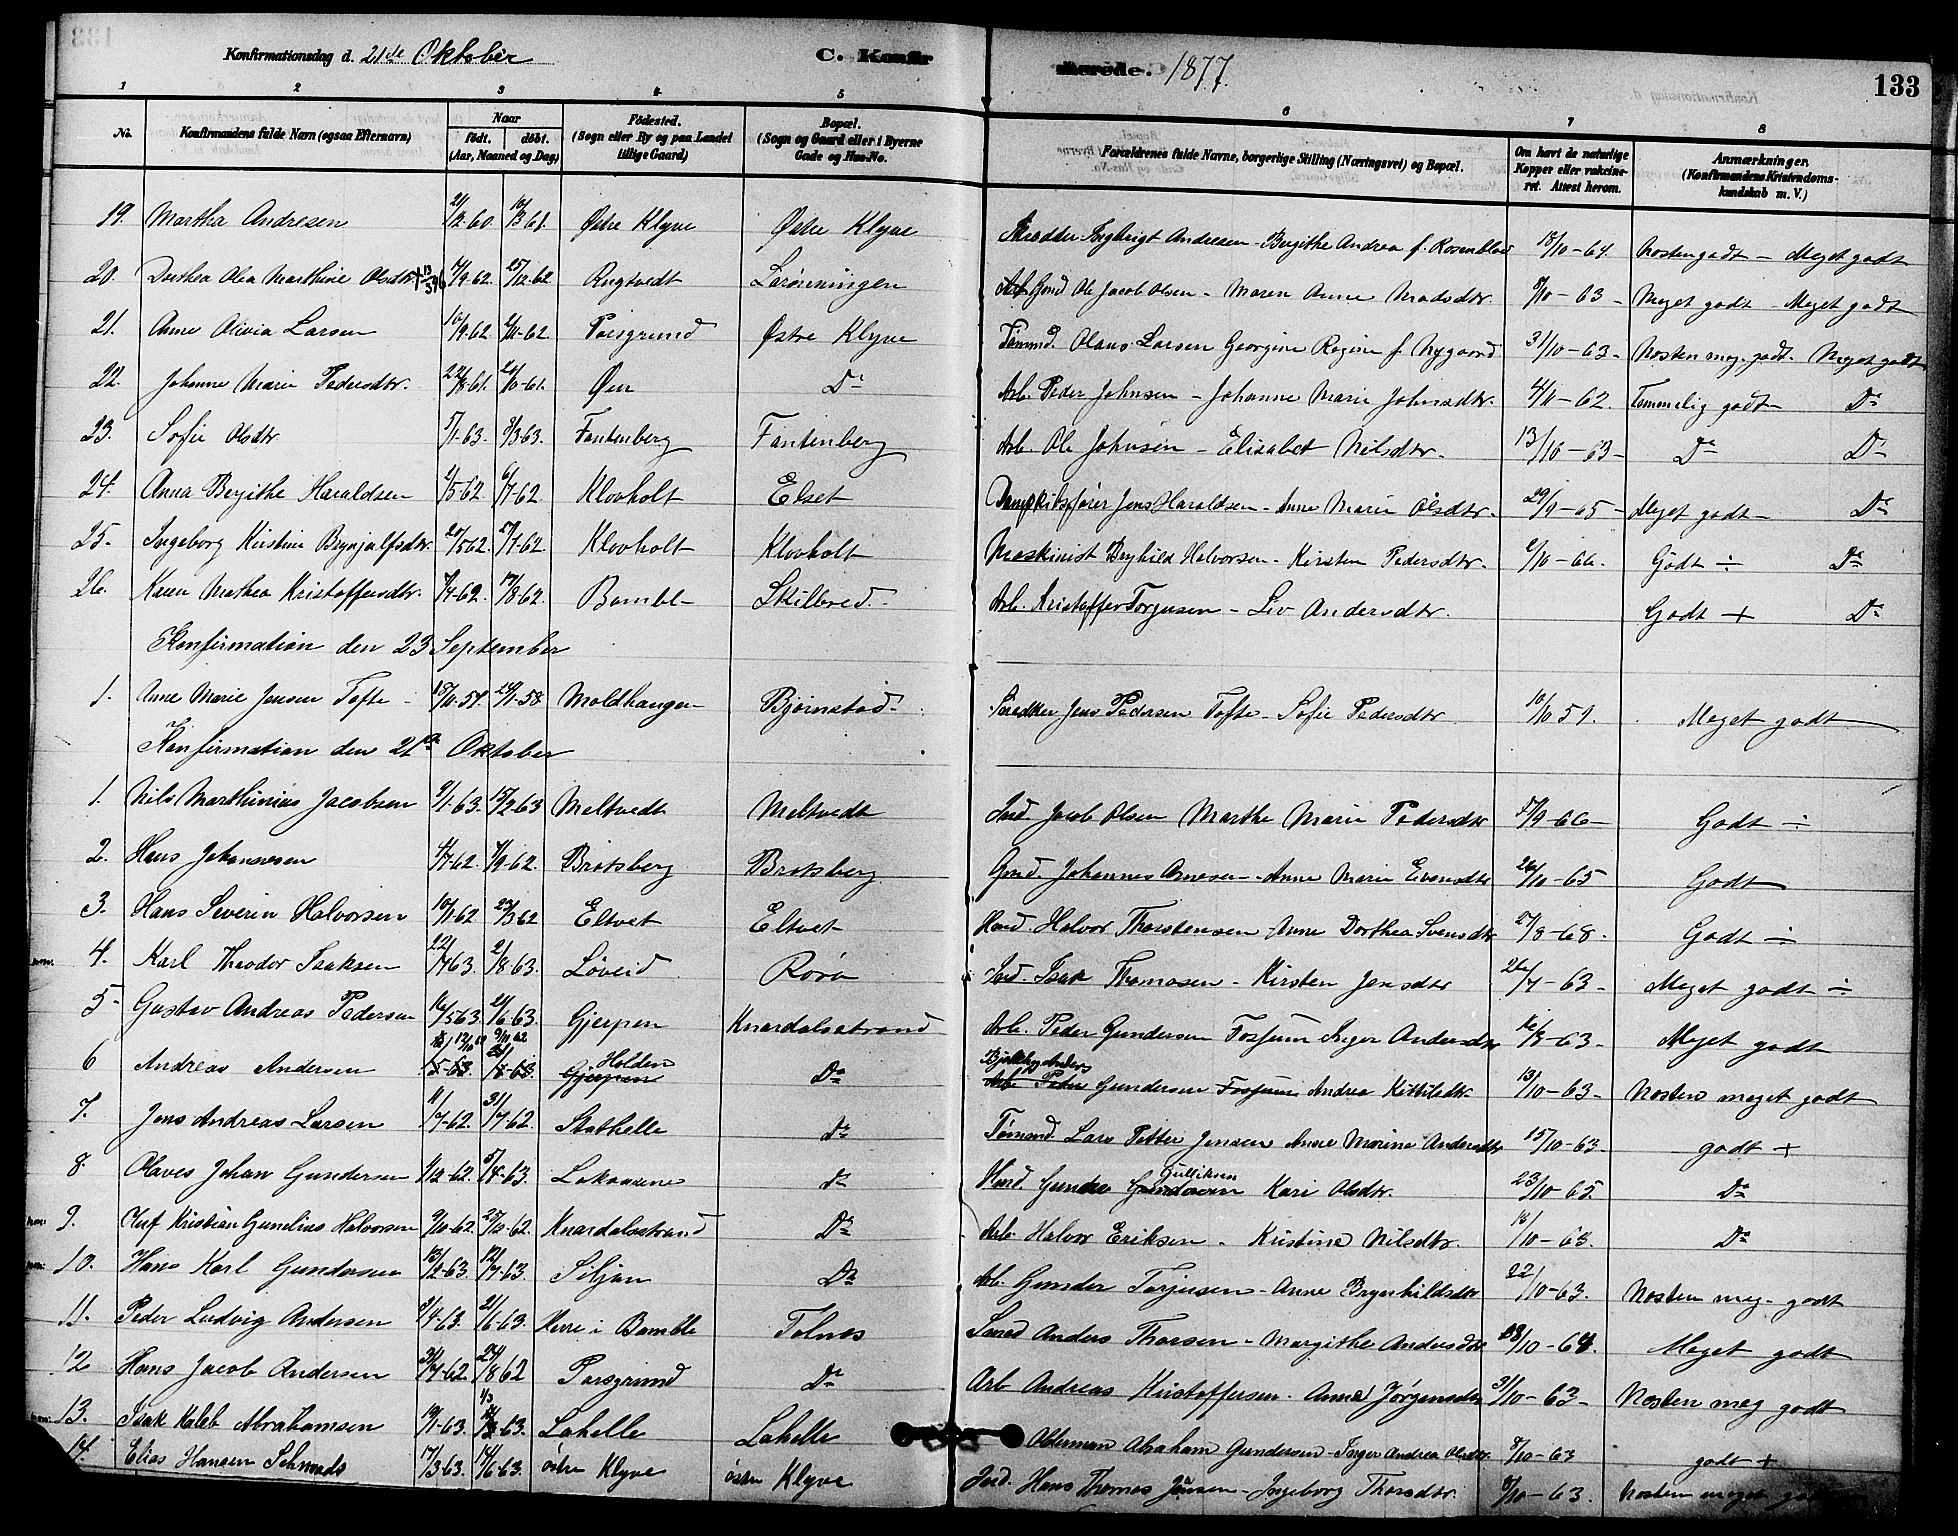 Konfirmationsdag d. 21de Oktober C. Konfir merede. 1877. 133
1 2 3 4 5 6 7 8
No. Konfirmandens fulde Navn (ogsaa Efternavn) Naar født. døbt. (Aar, Maaned og Dag) Fødested. (Sogn eller By og paa Landet tillige Gaard) Bopæl. (Sogn og Gaard eller i Byerne Gade og Hus-No. Forældrenes fulde Navne, borgerlige Stilling (Næringsvei) og Bopæl. Om havt de naturlige Kopper eller vakcineret. Attest herom. Anmærkninger. (Konfirmandens Kristendomskundskab m. V.)
19. Martha Andresen 21/12-60 10/3 61. Østre Klyve Østre Klyve Andresen - Bergithe Andrea f. Rosenblad 18/10-64. Nosten godt - Meget godt
20. Dorthea Olea Marthine Olsdtr 25/12-62 Rugtvedt Lerønningen Gmd Ole Jacob Olsen - Maren Anne Madsdtr. 8/10-63 - Meget godt - Meget godt
21. Anne Olivia Larsen 10/9-62 Porsgrund Østre Klyve Tømmd. Olaus Larsen Georgine Regine f. Nygaard 31/10-63 - Nosten meg. godt. Meget godt
22. Johanne Marie Pedersdtr. 22/8-61. 20/10-61. Øen Do Arb. Peder Johnsen - Johanne Marie Johnsdtr. 4/10-62. Temmelig godt Do
23. Sofie Olsdtr 5/1-63. 8/3 63. Fantenberg Fantenberg Arb. Ole Johnsen - Elisabet Nilsdtr. 13/10-63 - Do Do
24. Anna Bergithe Haraldsen 2/5 62 6/7-62 Klovholt Elset Dampskibsfører Jens Haraldsen - Anne Marie Olsdtr. 29/9-65 - Meget godt - Do
25. Ingeborg Kirstine Brynjulfsdtr. 20/5 62. 27/7-62. Klovholt Klovholt Maskinist Brynhild Halvorsen - Kirsten Pedersdtr. 6/10-66. Godt ÷ Do
26. Karen Mathea Kristoffersdtr. 7/4-62. 17/8-62. Bamble Skilbred. Arb. Kristoffer Torjusen - Liv Andersdtr. Godt + Do
Konfirmation den 23 September
1. Anne Marie Jensen Tofte - 18/10-57. 24/1-58 Moldhaugen Bjørnstad Smedker Jens Pedersen Tofte - Sofie Pedersdtr 10/10 51. Meget godt
Konfirmation den 21de Oktober
1. Nils Marthinius Jacobsen 9/1-63. 15/2-63 Meltvedt Meltvedt Jord. Jacob Olsen Marthe Marie Pedersdtr 17/9-66 - Godt ÷
2. Hans Johannesen 4/7-62. 7/9-62. Brotsberg Brotsberg Gmd. Johannes Arnesen - Anne Marie Evensdtr 26/10-65 Godt
3. Hans Severin Halvorsen 10/1-62 23/3 62 Eltvet Eltvet Hmd. Halvor Thorstensen - Anne Dorthea Svensdtr 27/8-68. Godt ÷
4. Karl Theodor Isaksen 22/7 63. 2/8 63. Løveid Rorø Isak Thomasen - Kirsten Jensdtr 26/7-63 - Meget godt ÷
5 Gustav Andreas Pedersen 16/5 63. 21/6 63. Gjerpen Knardalsstrand Arb. Peder Gundersen Fossum Inger Andersdtr 16/8-63 - Meget godt
6 Andreas Andersen 12/10 62 9/11 62 Gjerpen Holden Do Bjelkhug. Anders Arb. Peder Gundersen Fossum Andrea Kittilsdtr. 13/10-63 - Nosten meget godt
7. Jens Andreas Larsen 11/7-62. 31/7-62. Stathelle Do Tømmd. Lars Petter Jensen Anne Marine Andersdtr 15/10-63. godt +
8. Olaves Johan Gundersen 1/12-62. 5/4-63. Lakaasene Do Hmd. Gunder Gundersen Gulliksen Kari Olsdtr. 23/10-65 Do
9. Kristian Gunelius Halvorsen 9/10-62. 25/12-62. Knardalsstrand Do Arb. Halvor Eriksen - Kirstine Nilsdtr. 18/10-63. Do
10. Hans Karl Gundersen 13/2-63. 12/7-63. Siljan Do Arb. Gunder Torjusen - Anne Brynhildsdtr 22/10-63. Nosten meg. godt
11. Peder Ludvig Andersen 3/4-63. 21/6-63. Herre i Bamble Tolnes Smed Anders Thorsen - Margithe Andersdtr 28/10-64. Meget godt
12 Hans Jacob Andersen 31/7-62. 24/8 62 Porsgrund Do Arb Andreas Kristoffersen. Anne Jørgensdtr 31/10-63 - Nosten meg godt
13. Isak Kaleb Abrahamsen 19/1-63. Lahelle Lahelle Olderman Abraham Gundersen - Inger Andrea Olsdtr. 7/10-63 godt +
14. Elias Hansen 17/3-63. 14/6-63. østre Klyve østre Klyve Jord. Hans Thomas Jensen - Ingeborg Thorsdtr. 8/10-63. Nosten meget godt